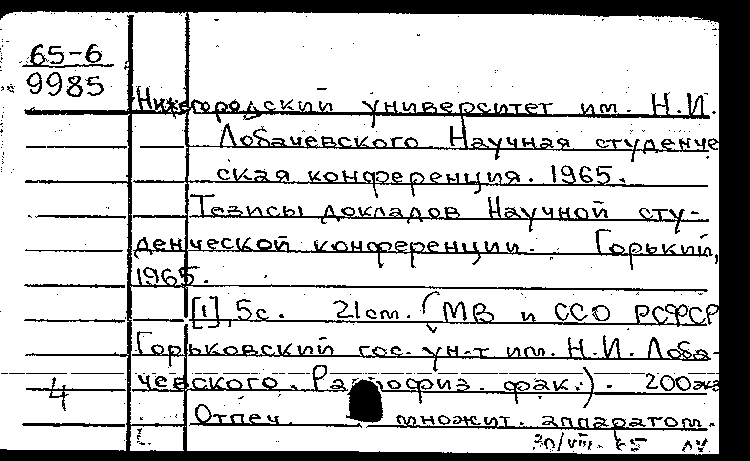 65-6
9985
Нижегородский университет им. Н.И.
Лобачевского. Научная студенче
ская конференция. 1965.
Тезисы докладов Научной сту-
денческой конференции. Горький,
1965.
[1], 5с. 21cm. (МВ и ССО РСФСР
Горьковский гос. ун-т им. Н.И. Лоба-
чевского. Радиофиз. фак.). 200экз
4
Отпеч. множит. аппаратом.
30/VIII-65